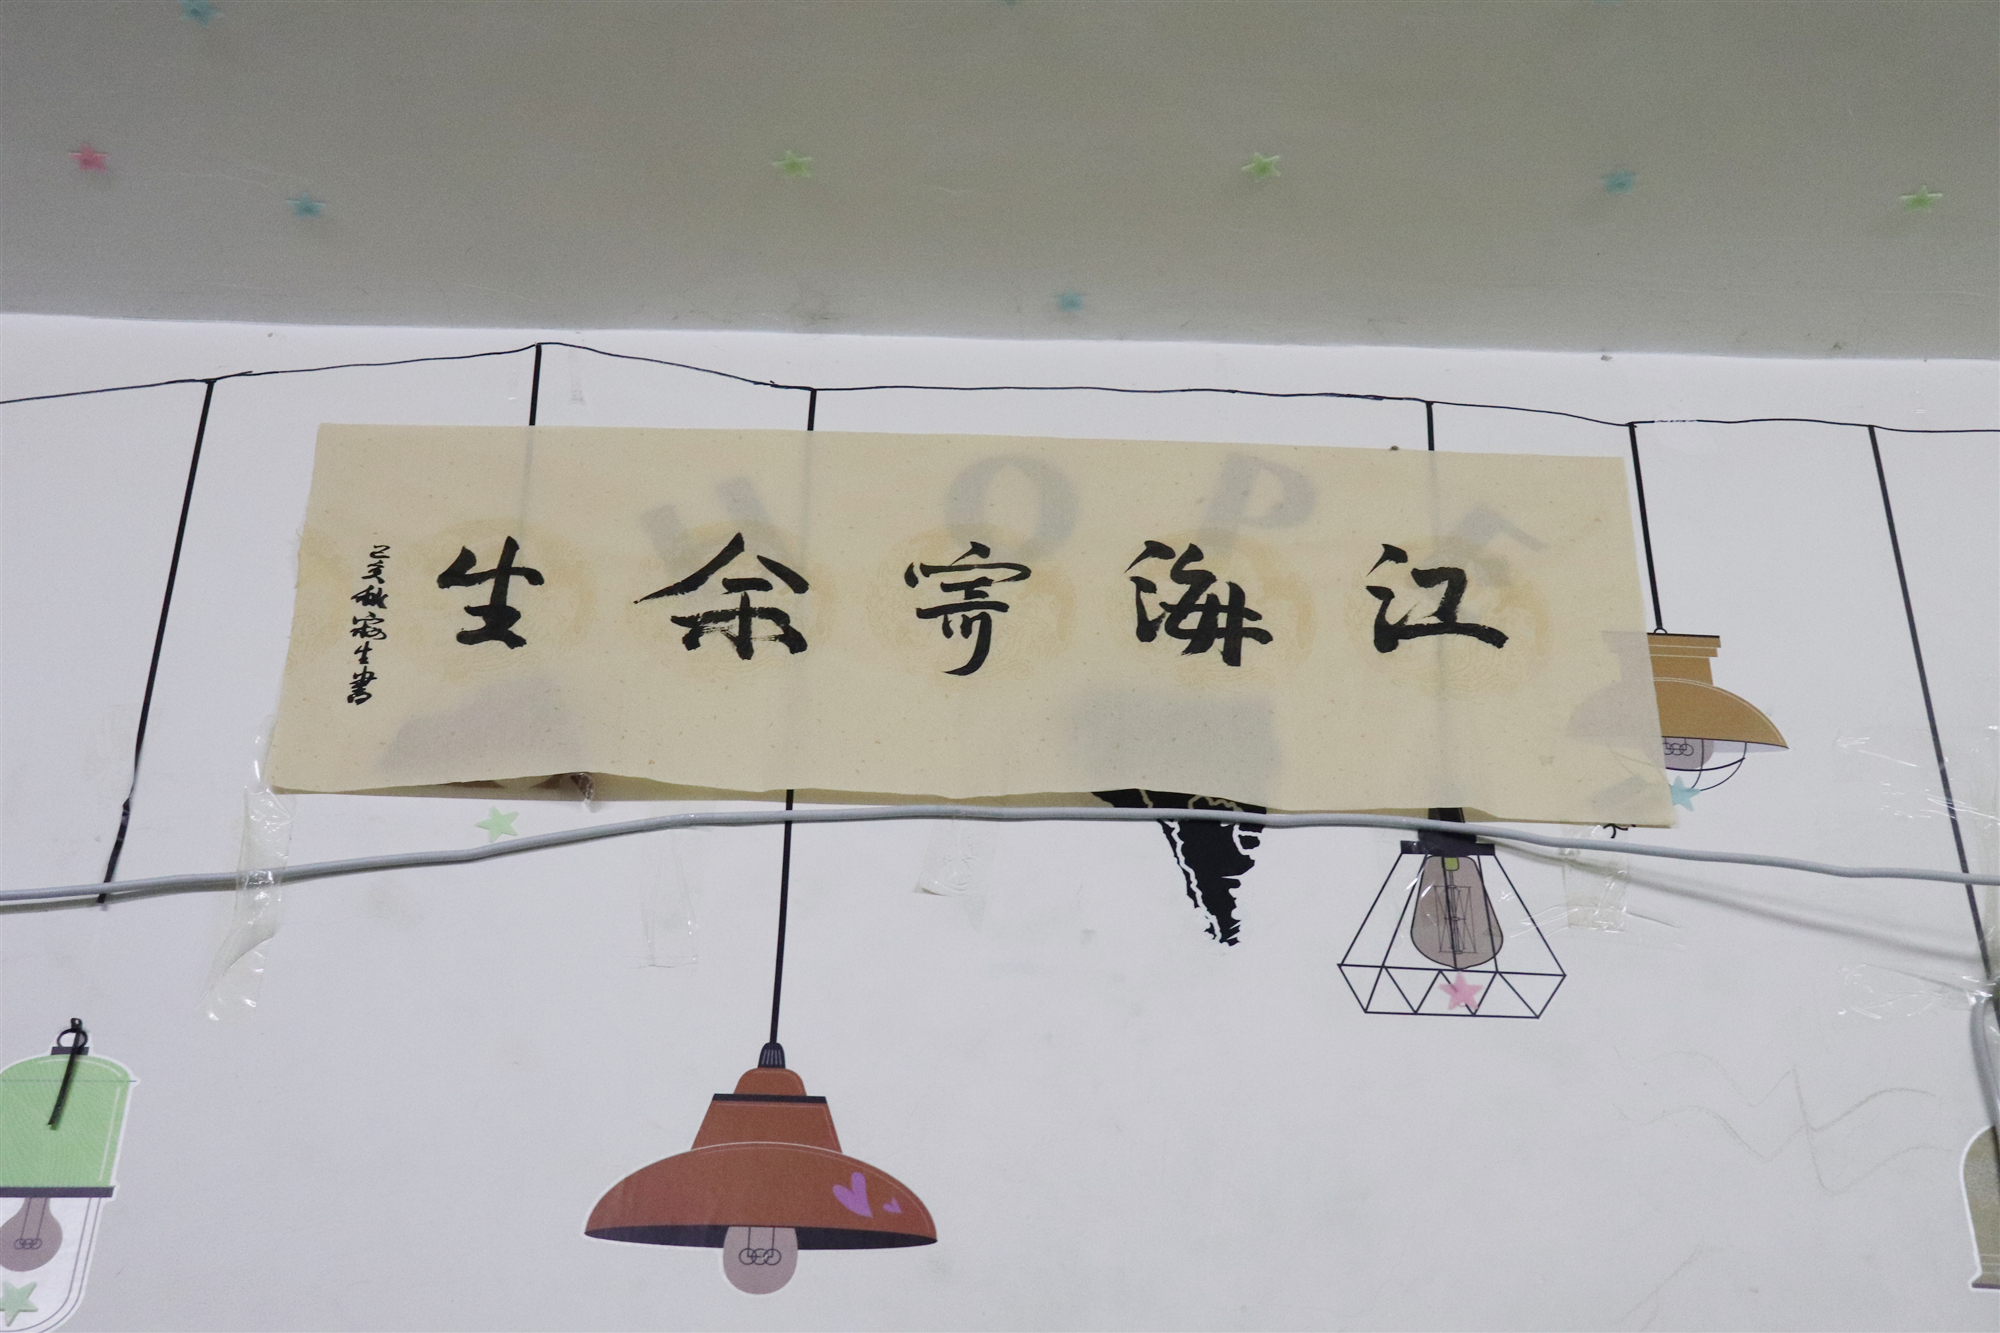 江海寄余生
己亥秋寂生書
HOPE